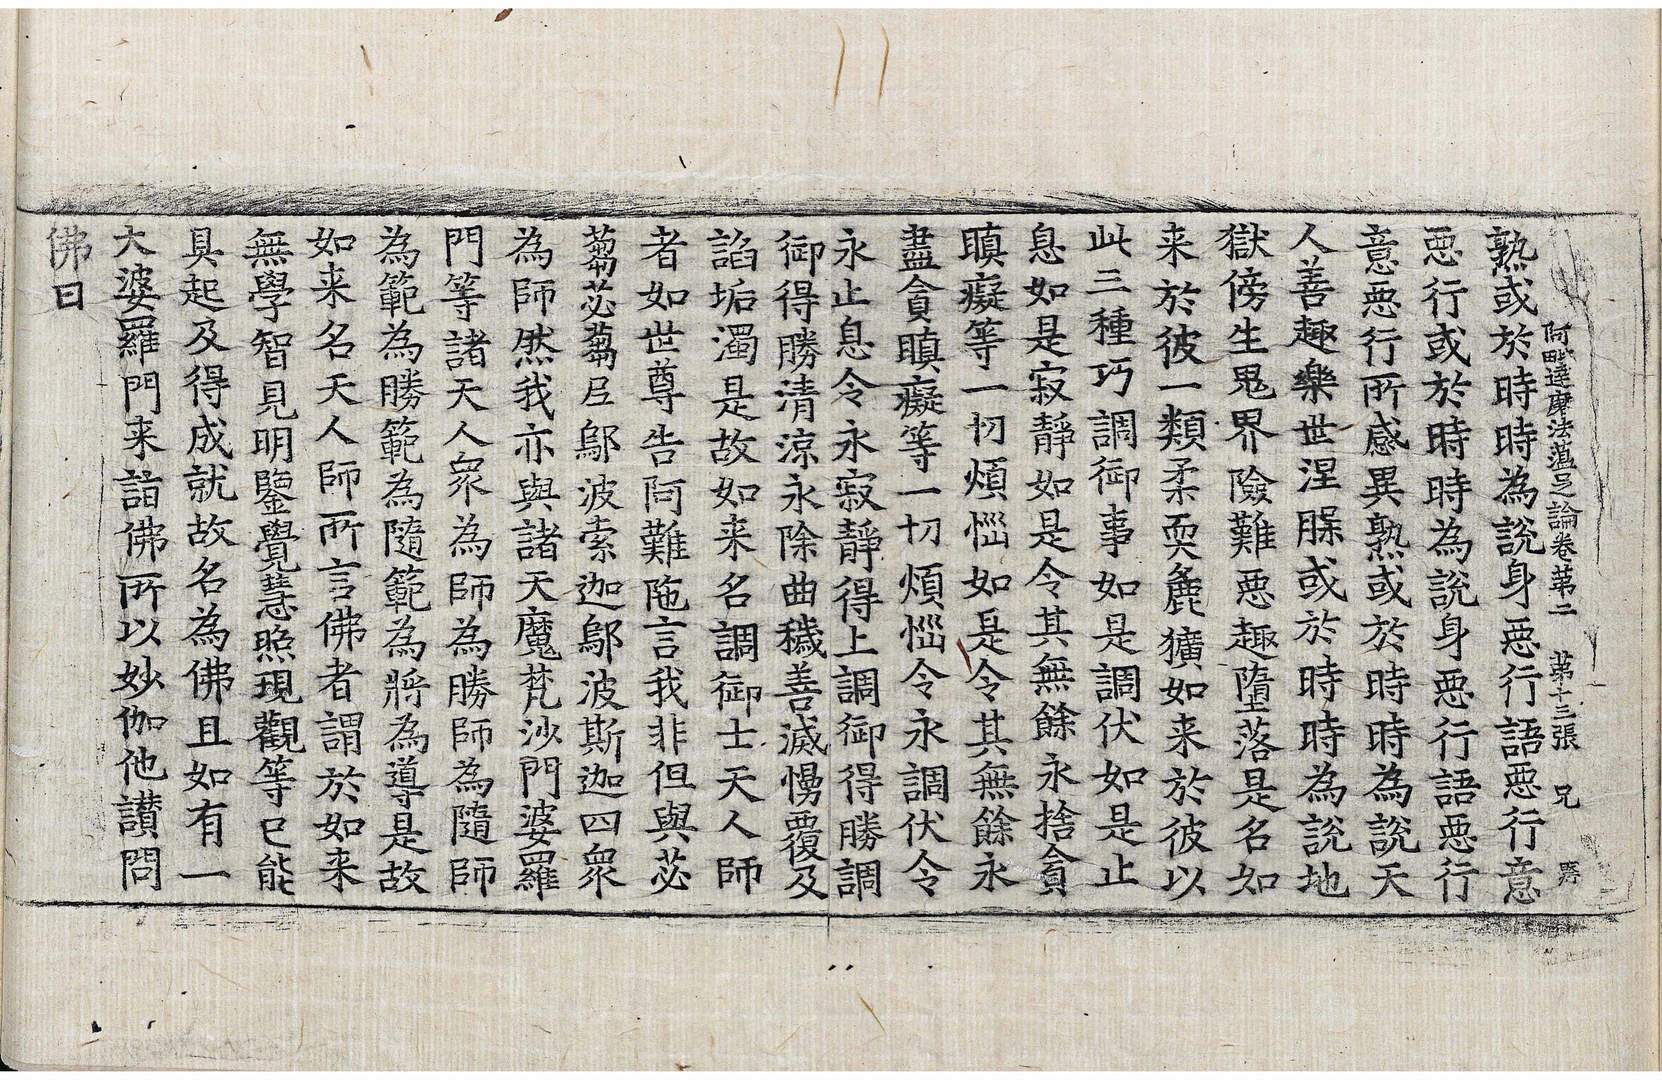 阿毗達磨法蕴足論卷苐二 苐十三張 兄
熟或於時時為說身惡行語惡行意
惡行或於時時為說身惡行語惡行
意惡行所感異熟或於時時為說天
人善趣樂世涅槃或於時時為說地
獄傍生鬼界險難惡趣墮落是名如
来於彼一類柔耎麁獷如来於彼以
此三種巧調御事如是調伏如是止
息如是寂靜如是令其無餘永捨貪
瞋癡等一切煩惱如是令其無餘永
盡貪瞋癡等一切煩惱令永調伏令
永止息令永寂靜得上調御得勝調
御得勝清涼永除曲穢善滅慢覆及
諂垢濁是故如来名調御士天人師
者如世尊告阿難陁言我非但與苾
蒭苾蒭尼鄔波索迦鄔波斯迦四衆
為師然我亦與諸天魔梵沙門婆羅
門等諸天人衆為師為勝師為隨師
為範為勝範為隨範為將為導是故
如来名天人師所言佛者謂於如来
無學智見明鑒覺慧照現觀等已能
具起及得成就故名為佛且如有一
大婆羅門来詣佛所以妙伽他讃問
佛曰